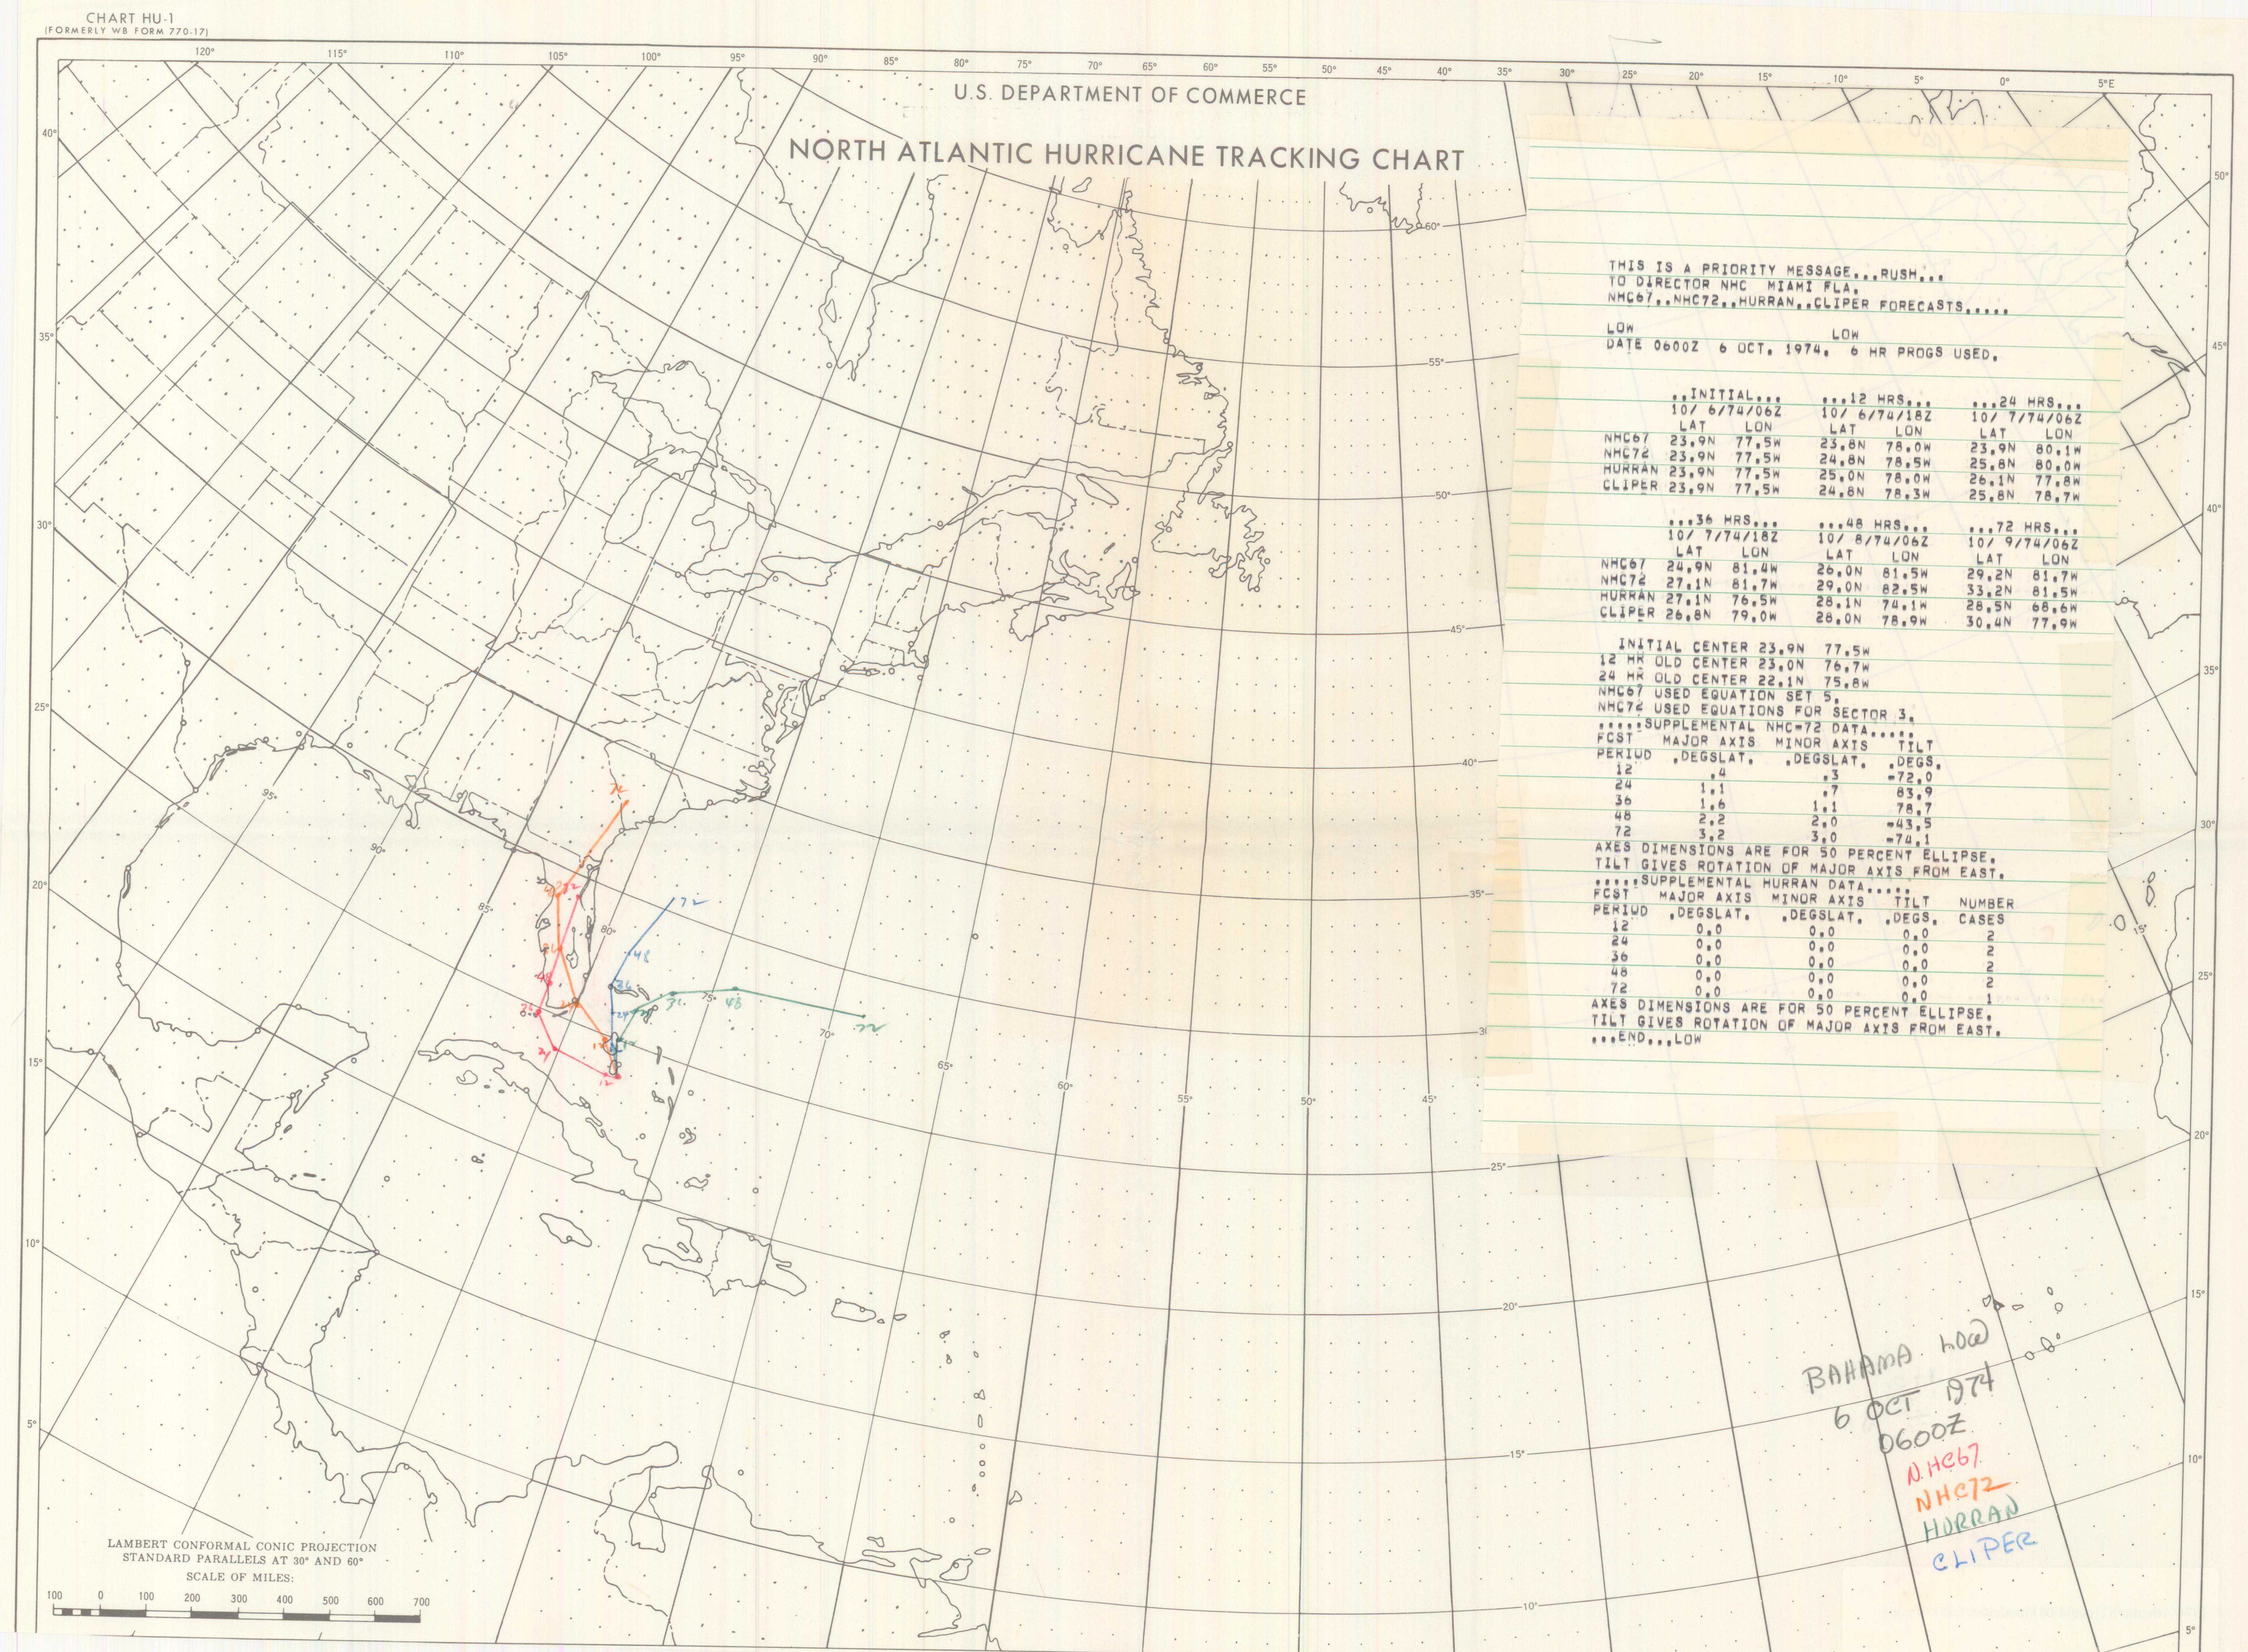 CHART HU-1
(FORMERLY WB FORM 770-17)
120° 115° 110° 105° 100° 95° 90° 85° 80° 75° 70° 65° 60° 55° 50° 45° 40° 35° 30° 25° 20° 15° 10° 5° 0° 5°E
U.S. DEPARTMENT OF COMMERCE
NORTH ATLANTIC HURRICANE TRACKING CHART
40°
35°
30°
25°
20°
15°
10°
5°
60°
55°
50°
45°
40°
35°
30
25°
20°
15°
10°
50°
45°
40°
35°
30°
25°
20°
15°
10°
5°
15°
95°
90°
85°
80°
75°
70°
65°
60°
55°
50°
45°
THIS IS A PRIORITY MESSAGE...RUSH...
TO DIRECTOR NHC MIAMI FLA.
NHC67..NHC72..HURRAN..CLIPER FORECASTS.....
LOW LOW
DATE 0600Z 6 OCT. 1974. 6 HR PROGS USED.
..INITIAL... ...12 HRS... ...24 HRS...
10/ 6/74/06Z 10/ 6/74/18Z 10/ 7/74/06Z
LAT LON LAT LON LAT LON
NHC67 23.9N 77.5W 23.8N 78.0W 23.9N 80.1W
NHC72 23.9N 77.5W 24.8N 78.5W 25.8N 80.0W
HURRAN 23.9N 77.5W 25.0N 78.0W 26.1N 77.8W
CLIPER 23.9N 77.5W 24.8N 78.3W 25.8N 78.7W
...36 HRS... ...48 HRS... ...72 HRS...
10/ 7/74/18Z 10/ 8/74/06Z 10/ 9/74/06Z
LAT LON LAT LON LAT LON
NHC67 24.9N 81.4W 26.0N 81.5W 29.2N 81.7W
NHC72 27.1N 81.7W 29.0N 82.5W 33.2N 81.5W
HURRAN 27.1N 76.5W 28.1N 74.1W 28.5N 68.6W
CLIPER 26.8N 79.0W 28.0N 78.9W 30.4N 77.9W
INITIAL CENTER 23.9N 77.5W
12 HR OLD CENTER 23.0N 76.7W
24 HR OLD CENTER 22.1N 75.8W
NHC67 USED EQUATION SET 5.
NHC72 USED EQUATIONS FOR SECTOR 3.
.....SUPPLEMENTAL NHC-72 DATA.....
FCST MAJOR AXIS MINOR AXIS TILT
PERIOD .DEGSLAT. .DEGSLAT. .DEGS.
12 .4 .3 -72.0
24 1.1 .7 83.9
36 1.6 1.1 78.7
48 2.2 2.0 -43.5
72 3.2 3.0 -74.1
AXES DIMENSIONS ARE FOR 50 PERCENT ELLIPSE.
TILT GIVES ROTATION OF MAJOR AXIS FROM EAST.
.....SUPPLEMENTAL HURRAN DATA.....
FCST MAJOR AXIS MINOR AXIS TILT NUMBER
PERIOD .DEGSLAT. .DEGSLAT. .DEGS. CASES
12 0.0 0.0 0.0 2
24 0.0 0.0 0.0 2
36 0.0 0.0 0.0 2
48 0.0 0.0 0.0 2
72 0.0 0.0 0.0 1
AXES DIMENSIONS ARE FOR 50 PERCENT ELLIPSE.
TILT GIVES ROTATION OF MAJOR AXIS FROM EAST.
...END...LOW
72
72
72
48
36
48
36
48
72
24
12
BAHAMA LOW
6 OCT 1974
0600Z
NHC67
NHC72
HURRAN
CLIPER
LAMBERT CONFORMAL CONIC PROJECTION
STANDARD PARALLELS AT 30° AND 60°
SCALE OF MILES:
100 0 100 200 300 400 500 600 700